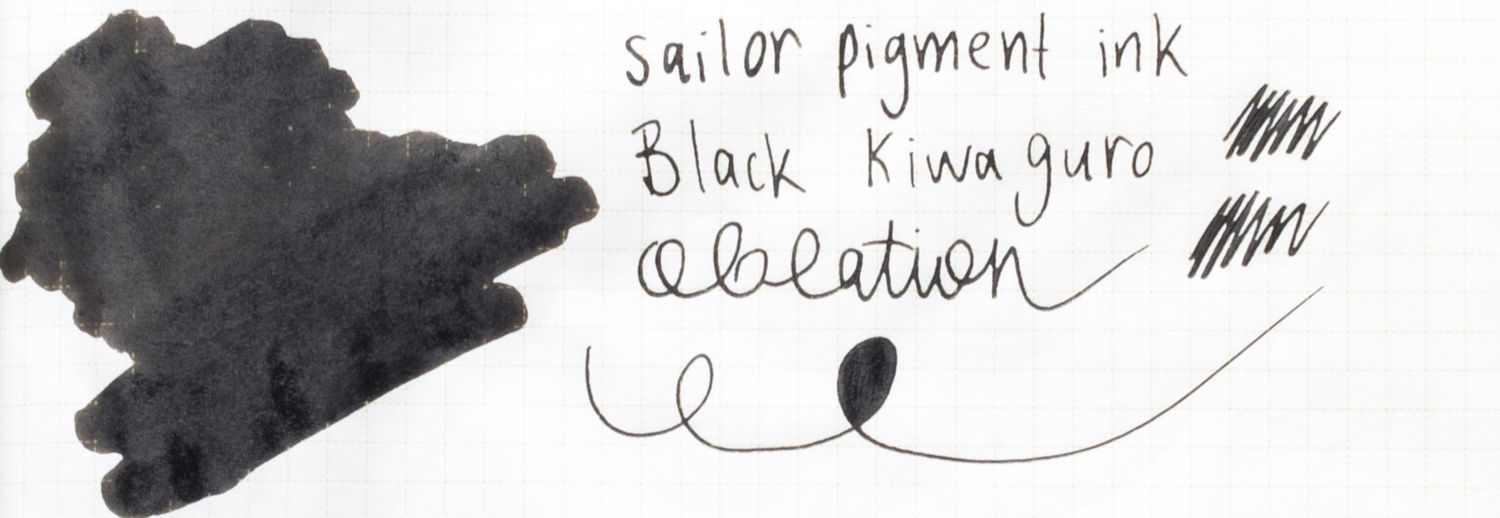 sailor pigment ink
Black Kiwaguro
ablation